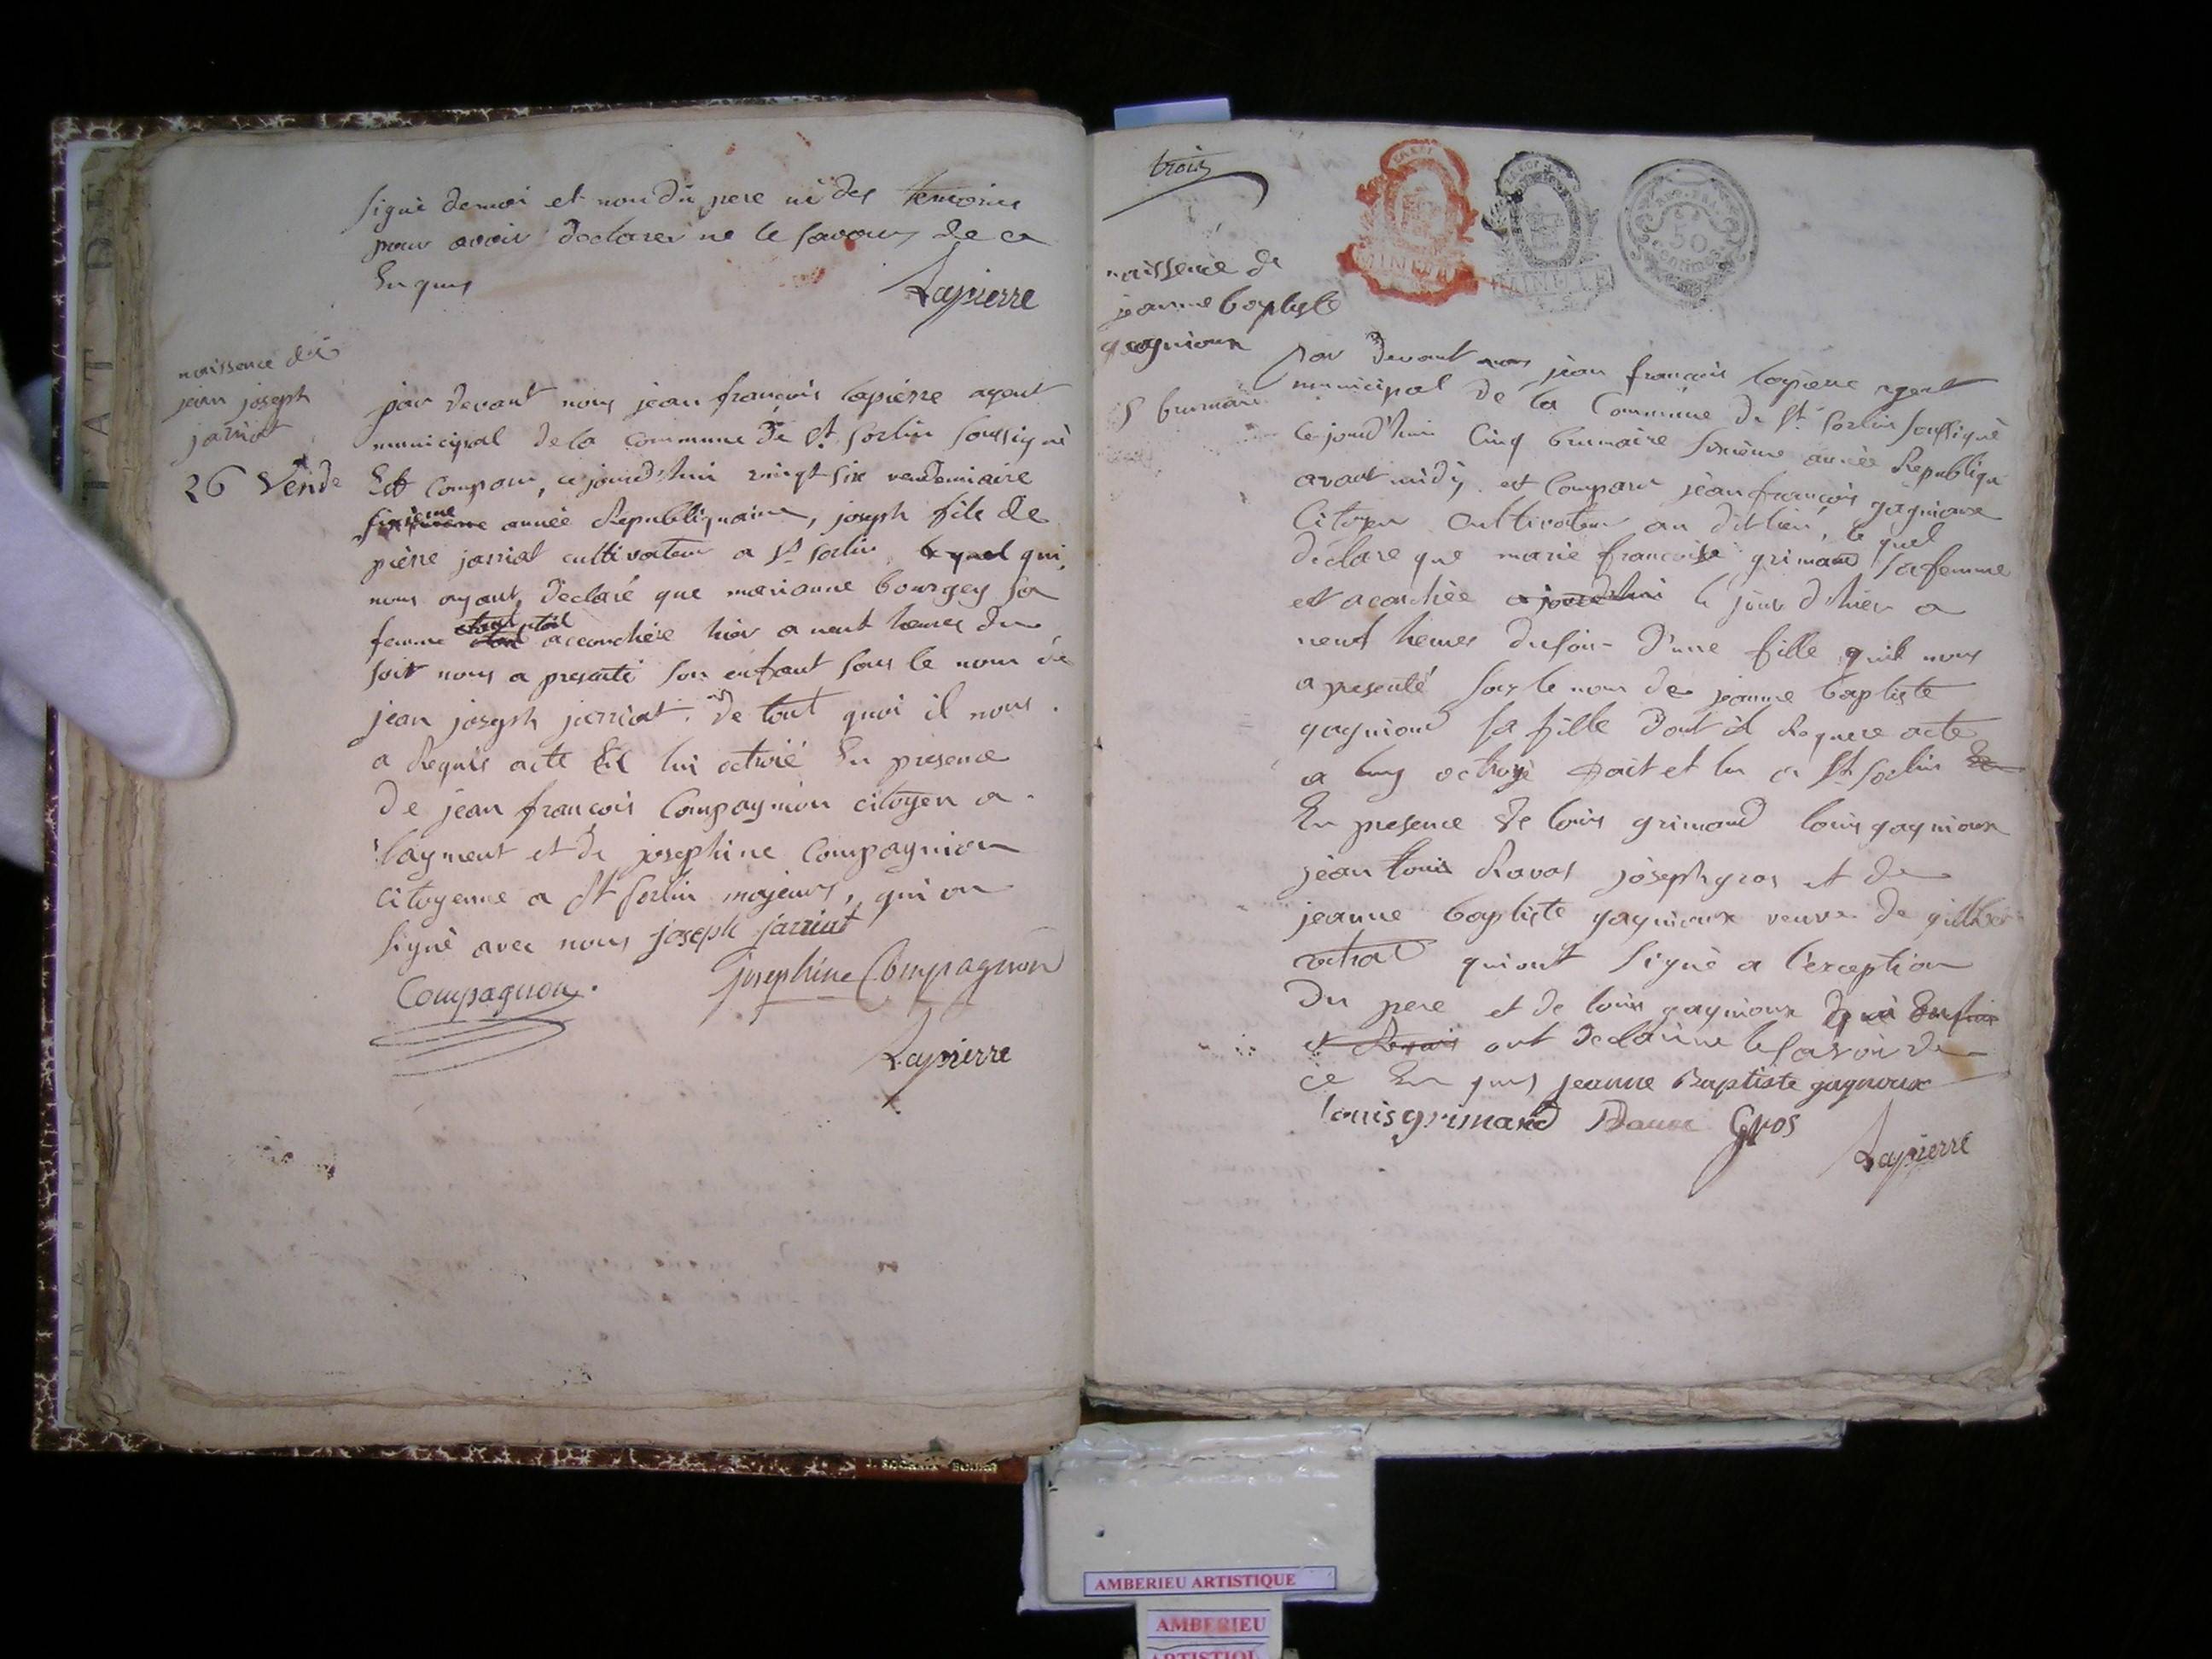 signé demoi et non du pere ni des temoins
pour avoir declarer ne le savoir de ce
Enquis
Lapierre
naissence de
jean joseph
jarriat
26 Vende
par devant nous jean françois lapierre agent
municipal dela Commune de St Sorlin soussigné
Est Comparu, ce jourd'hui vingt six vendemiaire
sixieme année Republiquaine, joseph fils de
pierre jarriat cultivateur a St Sorlin lequel qui
nous ayant declaré que marianne bourgey sa
femme etoit accouchée hier a neuf heures du
soir nous a presenté son enfant sous le nom de
jean joseph jarriat. De tout quoi il nous
a Requis acte lui octroié En presence
de jean françois Compagnion citoyen a
lagment et de josephine Compagnion
citoyenne a St Sorlin majeurs, qui on
signé avec nous joseph jarriat
Compagnon. josephine Compagnon
Lapierre
trois
naissence de
jeanne baptiste
gagnioux
5 brumaire
Par Devant nous jean françois lapierre agent
municipal de la Commune de St Sorlin soussigné
cejourd'hui Cinq brumaire sixième année Republiq
avant midy est Comparu jean françois gagnioux
Citoyen Cultivateur au dit lieu, le quel
declare que marie françoise grimand sa femme
est acouchée ce jourd'hui le jour d'hier a
neuf heures du soir d'une fille quil nous
a presenté sous le nom de jeanne baptiste
gagnioux sa fille dont il Requere acte
a luy octroyé fait et lu a St Sorlin
En presence de louis grimand louis gagnioux
jean louis Ravas joseph gros et de
jeanne baptiste gagnioux veuve de
qui ont signé a l'exception
Du pere et de louis gagnioux
ont declarè ne le savoir de
ce Enquis jeanne Baptiste gagnoux
louis grimand Gros
Lapierre
50
centimes
AMBERIEU ARTISTIQUE
AMBERIEU
ARTISTIQUE